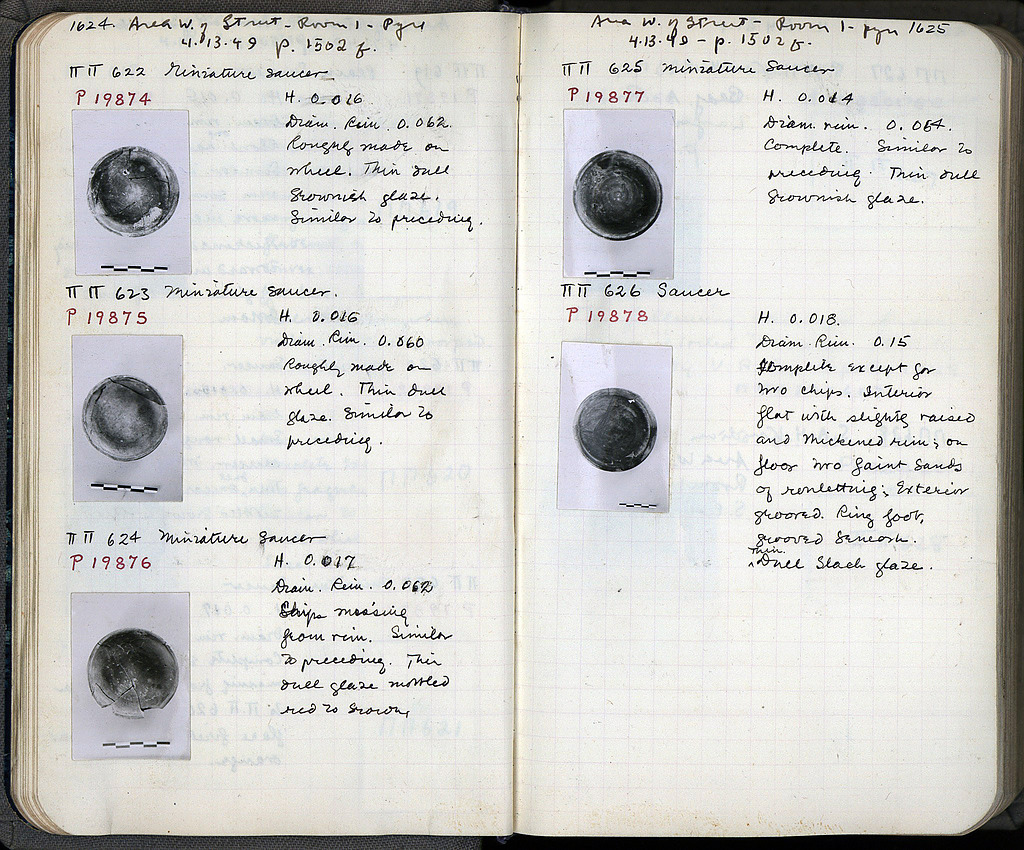 1624. Area W. of Street - Room 1 - Pyre
4.13.49 p. 1502 f.
ΠΠ 622 Miniature Saucer
P 19874
H. 0.026.
Diam. Rim. 0.062.
Roughly made on
wheel. Thin dull
brownish glaze.
Similar to preceding.
ΠΠ 623 Miniature Saucer.
P 19875
H. 0.016
Diam. Rim. 0.060
Roughly made on
wheel. Thin dull
glaze. Similar to
preceding.
ΠΠ 624 Miniature Saucer
P 19876
H. 0.017
Diam. Rim. 0.062
Chips missing
from rim. Similar
to preceding. Thin
dull glaze mottled
red to brown.
Area W. of Street - Room 1 - pyre 1625
4.13.49 - p. 1502 f.
ΠΠ 625 Miniature Saucer
P 19877
H. 0.014
Diam. rim. 0.064.
Complete. Similar to
preceding. Thin dull
brownish glaze.
ΠΠ 626 Saucer
P 19878
H. 0.018.
Diam. Rim. 0.15
Complete except for
two chips. Interior
flat with slightly raised
and thickened rim; on
floor two faint bands
of rouletting; Exterior
grooved. Ring foot,
grooved beneath.
Thin
^Dull black glaze.